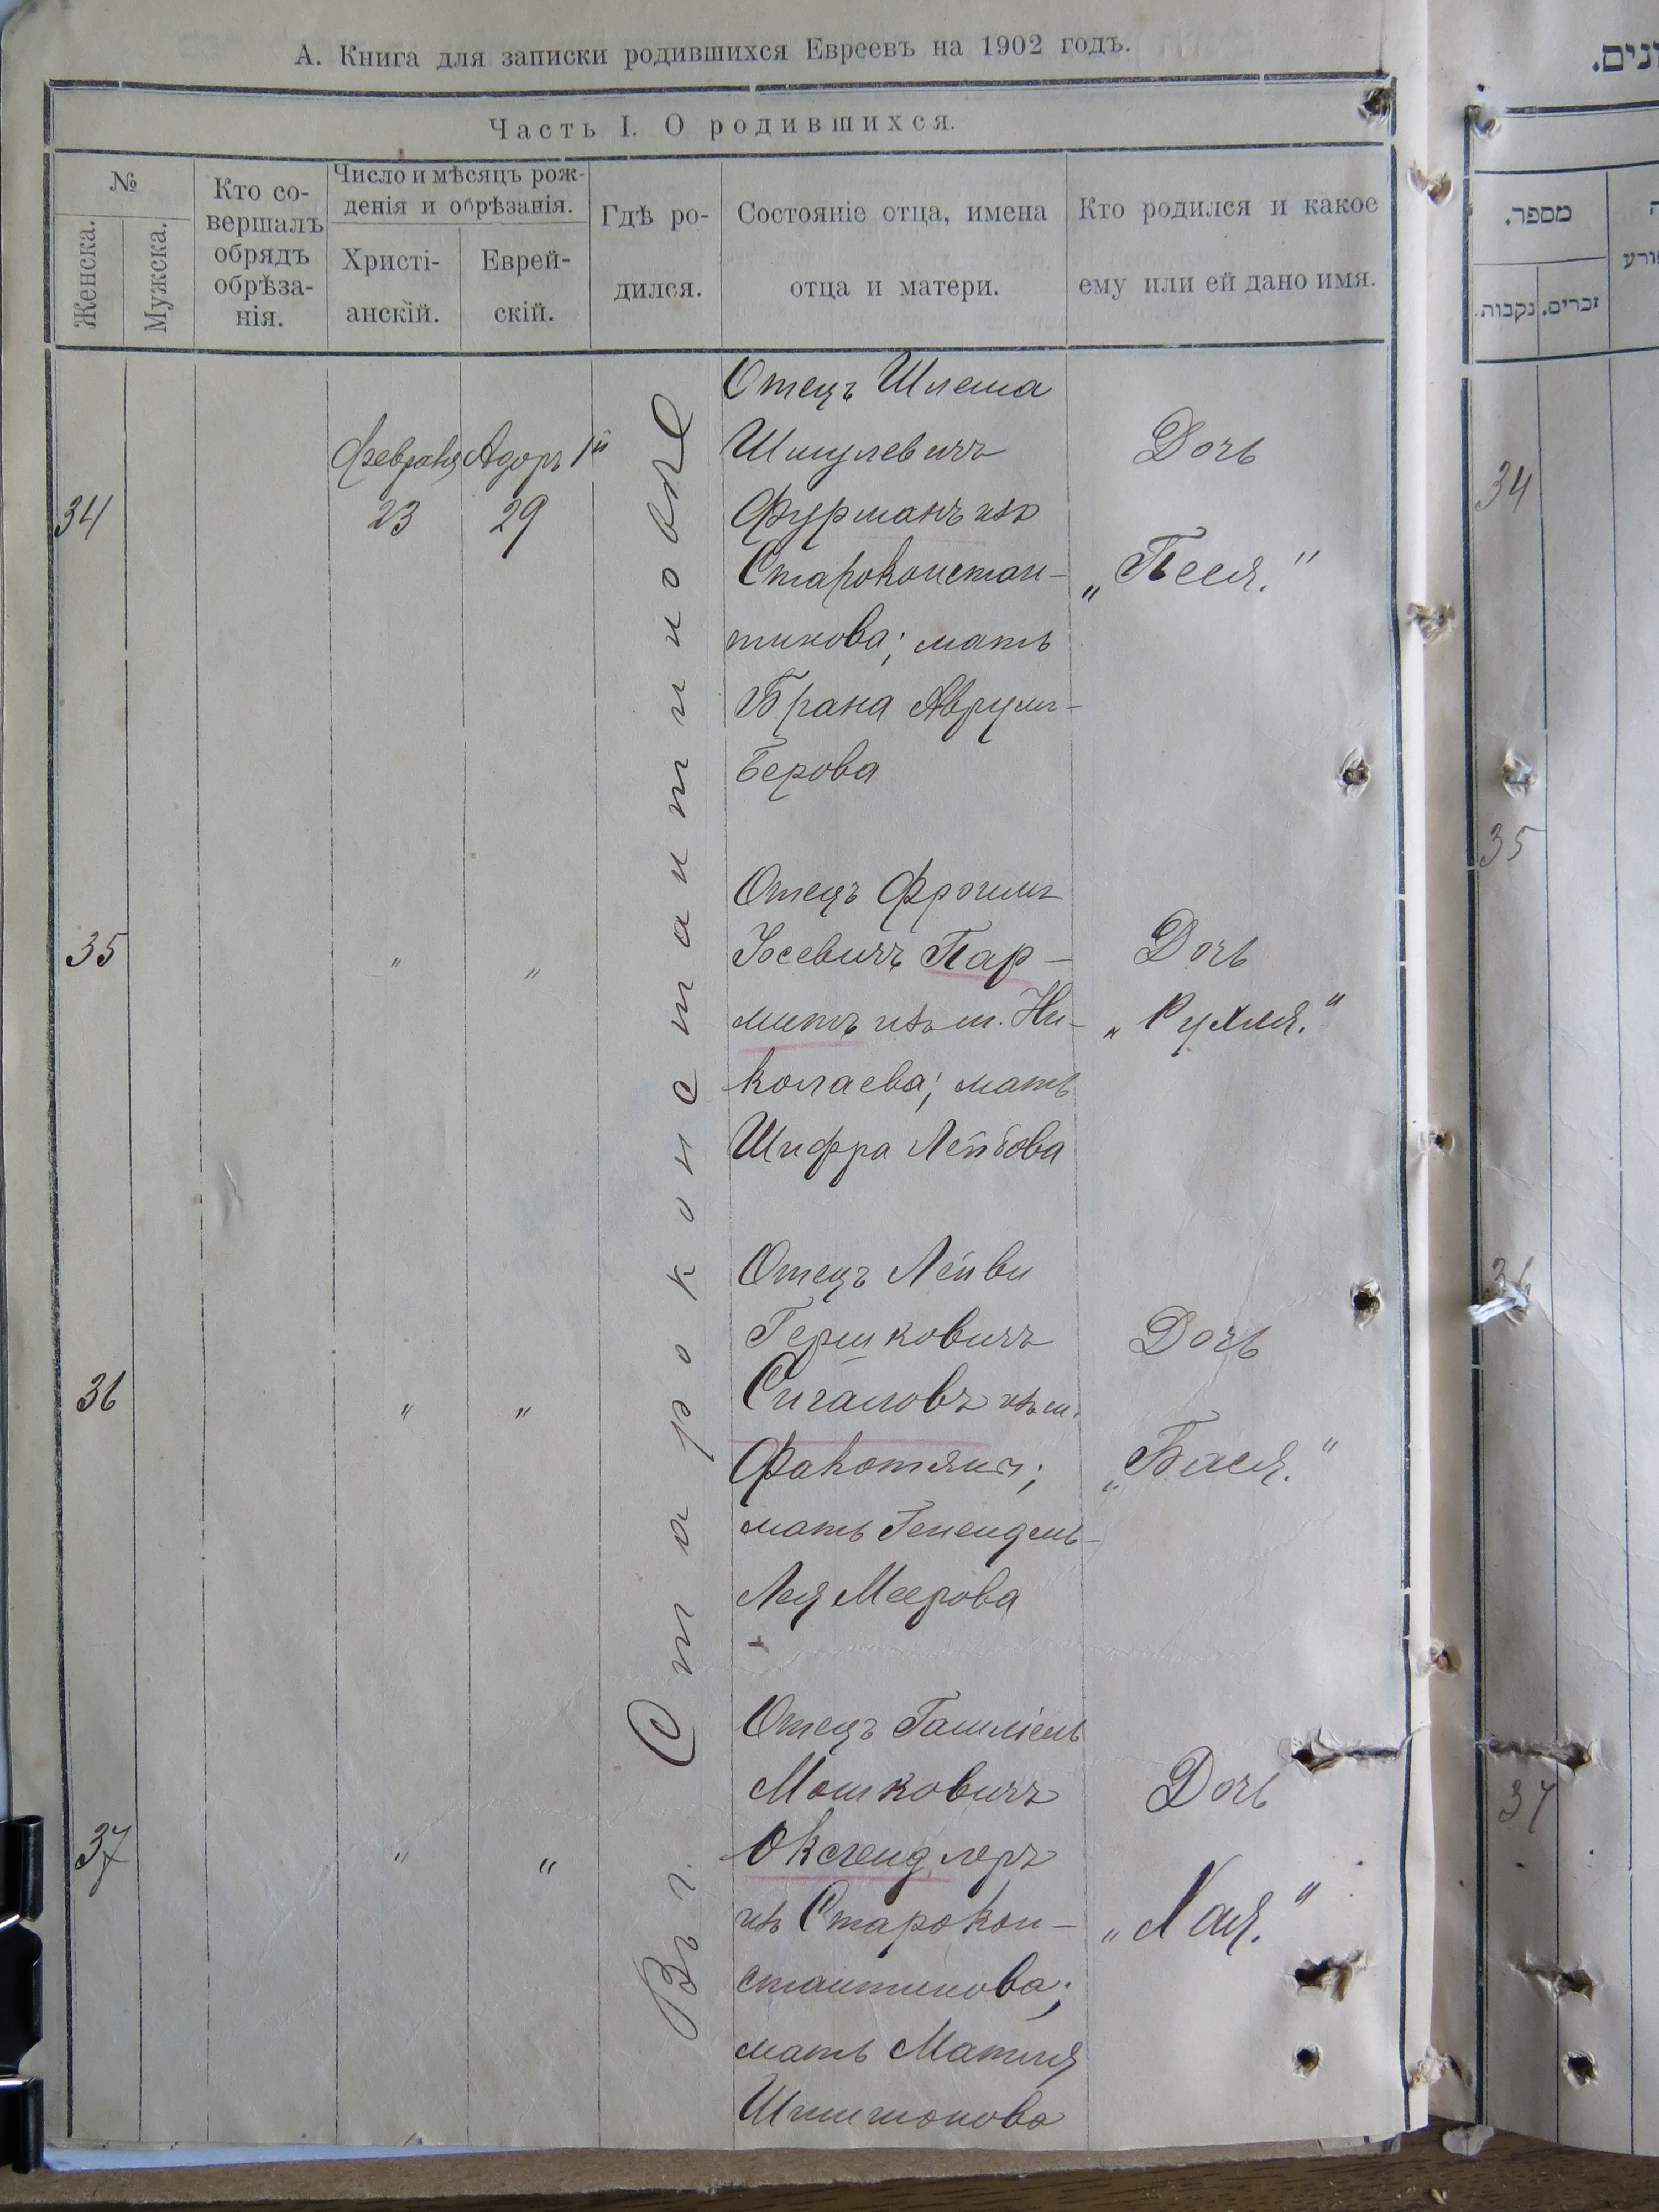 А. Книга для записки родившихся Евреевъ на 1902 годъ.
Часть I. О родившихся.
№
Женска.
Мужска.
Кто со-
вершалъ
обрядъ
обрѣза-
нія.
Число и мѣсяцъ рож-
денія и обрѣзанія.
Христі-
анскій.
Еврей-
скій.
Гдѣ ро-
дился.
Состояніе отца, имена
отца и матери.
Кто родился и какое
ему или ей дано имя.
Въ г. Староконстантиновѣ
34
Февраля
23
Адоръ 1й
29
Отецъ Шлема
Шмулевичъ
Фурманъ изъ
Староконстан-
тинова; мать
Брана Аврум-
Берова
Дочь
„Песя."
35
"
"
Отецъ Фроимъ
Іосевичъ Пар-
митъ изъ м. Ни-
колаева; мать
Шифра Лейбова
Дочь
„Рухля."
36
"
"
Отецъ Лейви
Гершковичъ
Сигаловъ изъ м.
мать Генендель-
Лея Меерова
Дочь
„Бася."
37
"
"
Отецъ Гамліель
Мошковичъ
Оксгендлеръ
изъ Старокон-
стантинова;
мать Матля
Шимшонова
Дочь
„Хая."
מספר.
נקבות.
זכרים.
34
35
36
37